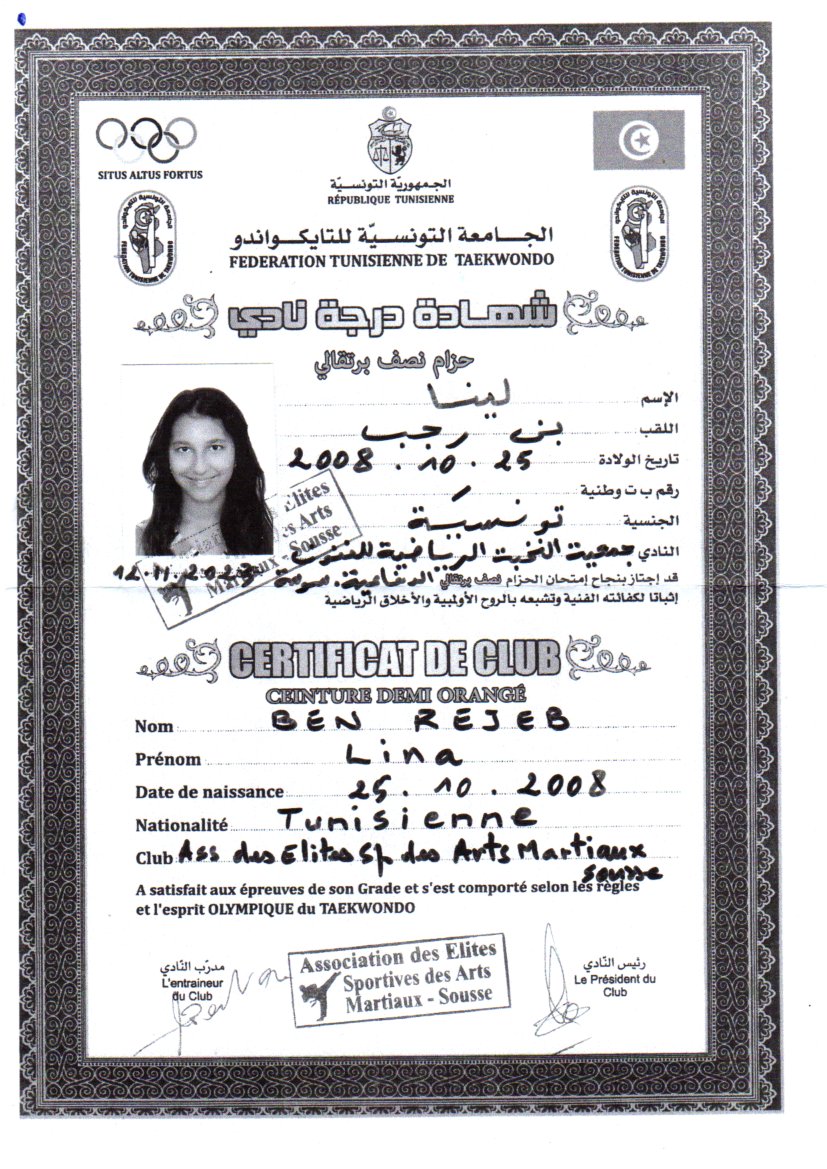 SITUS ALTUS FORTUS
الجمهوريّة التونسيّة
RÉPUBLIQUE TUNISIENNE
الجامعة التونسيّة للتايكواندو
FEDERATION TUNISIENNE DE TAEKWONDO
FEDERATION TUNISIENNE DE TAEKWONDO
FEDERATION TUNISIENNE DE TAEKWONDO
شهادة درجة نادي
حزام نصف برتقالي
الإسم لينا
اللقب بن رجب
تاريخ الولادة 25.10.2008
رقم ب ت وطنية
الجنسية تونسية
النادي جمعية النخبة الرياضية للفنون
قد إجتاز بنجاح إمتحان الحزام نصف برتقالي الدفاعية. سوسة 12.11.2023
إثباتا لكفائته الفنية وتشبعه بالروح الأولمبية والأخلاق الرياضية
Elites
des Arts
Martiaux - Sousse
CERTIFICAT DE CLUB
CEINTURE DEMI ORANGÉ
Nom BEN REJEB
Prénom Lina
Date de naissance 25.10.2008
Nationalité Tunisienne
Club Ass des Elites Sp des Arts Martiaux
Sousse
A satisfait aux épreuves de son Grade et s'est comporté selon les règles
et l'esprit OLYMPIQUE du TAEKWONDO
مدرّب النّادي
L'entraineur
du Club
Association des Elites
Sportives des Arts
Martiaux - Sousse
رئيس النّادي
Le Président du
Club